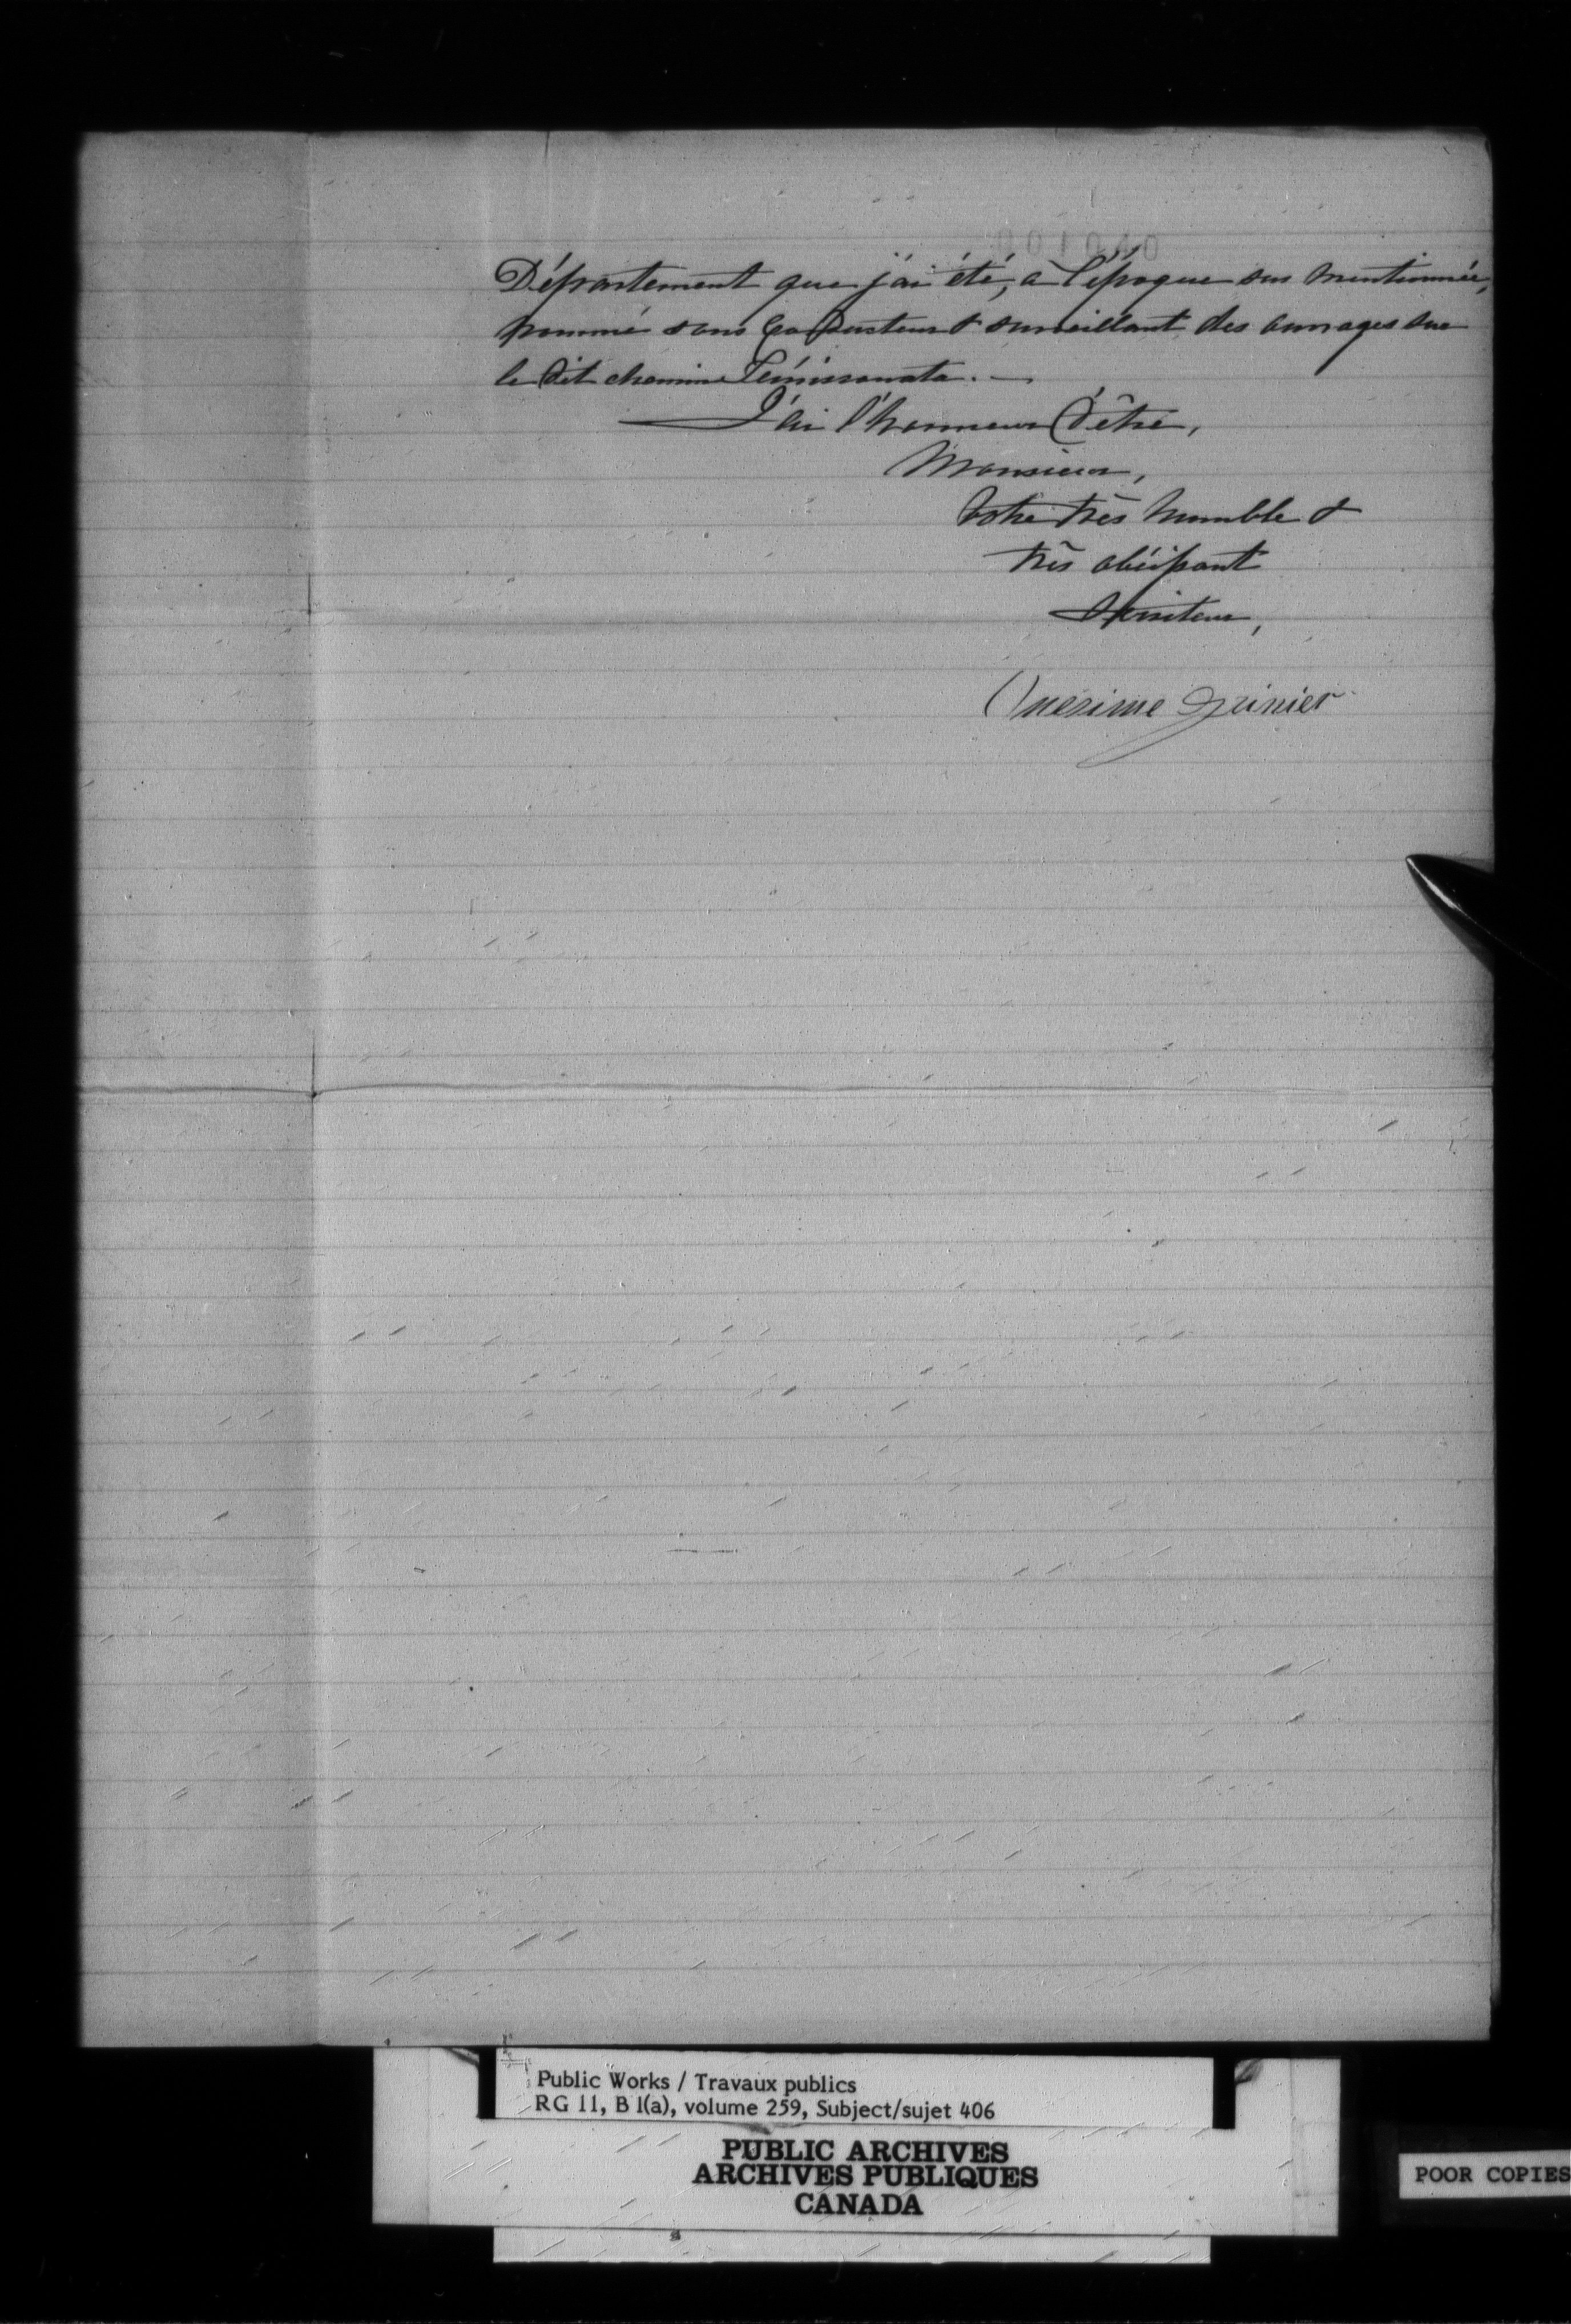 Département que j'ai été, à l'époque sus mentionnée,
nommé sous Conducteur & surveillant des ouvrages sur
le dit chemin Témiscouata. —
J'ai l'honneur d'être,
Monsieur,
Votre très humble &
très obéissant
Serviteur,
Onézime
Public Works / Travaux publics
RG 11, B 1(a), volume 259, Subject/sujet 406
PUBLIC ARCHIVES
ARCHIVES PUBLIQUES
CANADA
POOR COPIES